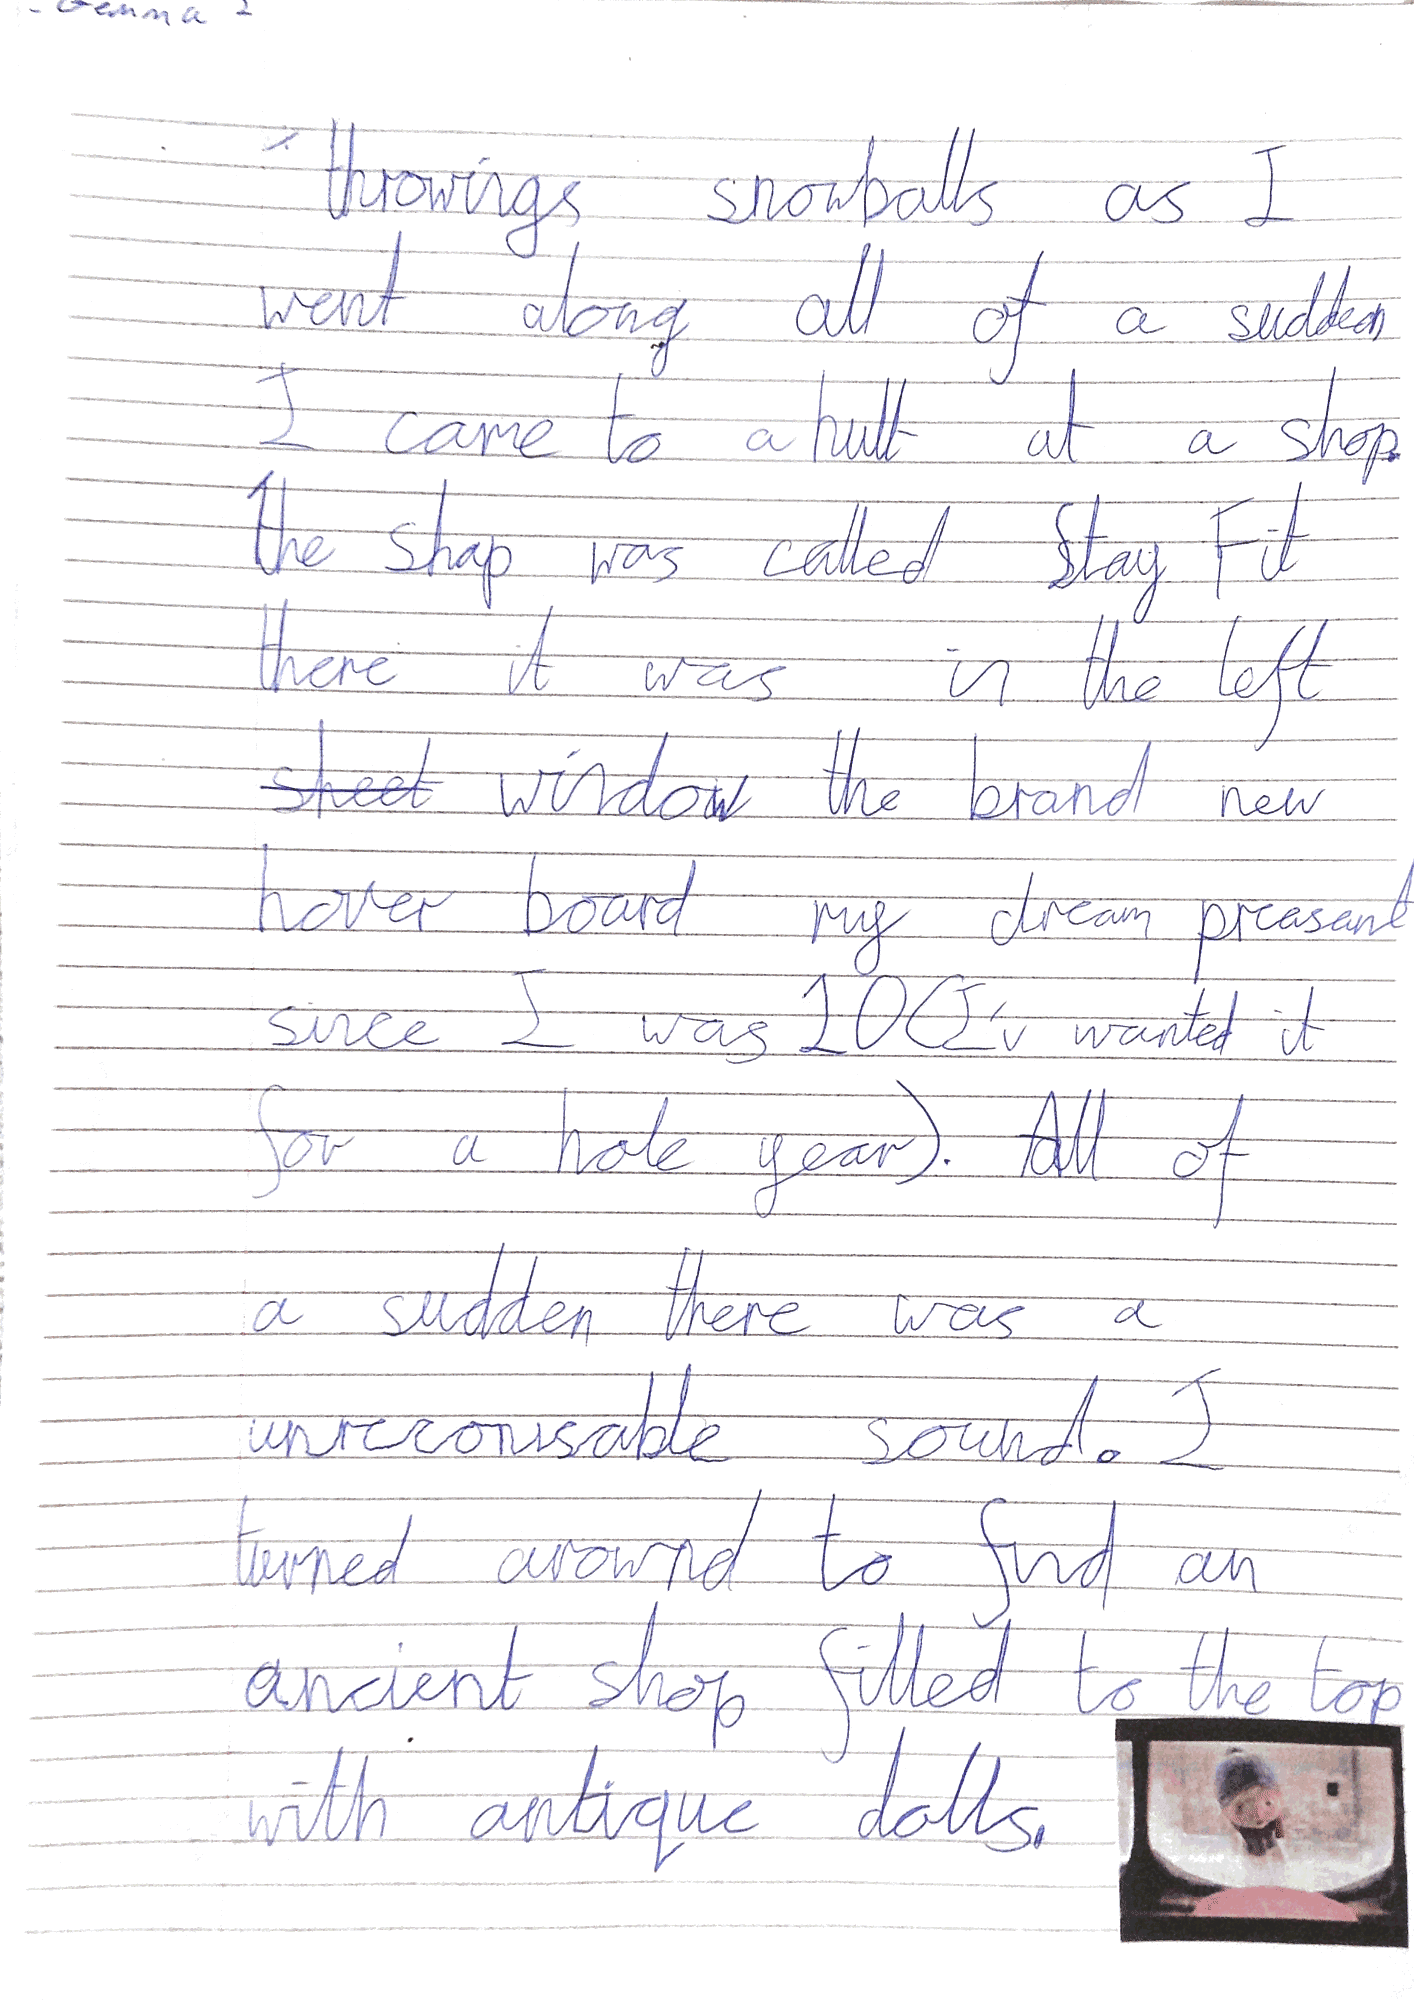 - Gemma 2
throwings snowballs as I
went along all of a sudden
I came to a hult at a shop.
The shop was called Stay Fit
there it was in the left
sheet window the brand new
hover board my dream preasant
since I was 10 (I'v wanted it
for a hole year). All of
a sudden there was a
unreconisable sound. I
turned arownd to find an
ancient shop filled to the top
with antique dolls.